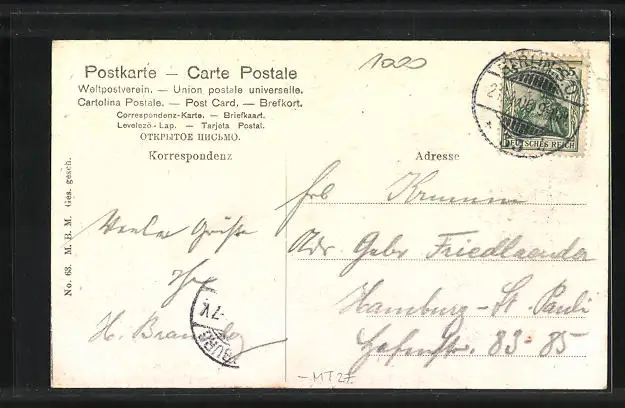 1020
Postkarte — Carte Postale
Weltpostverein. — Union postale universelle.
Cartolina Postale. — Post Card. — Brefkort.
Correspondenz-Karte. — Briefkaart.
Levelezö-Lap. — Tarjeta Postal.
ОТКРЫТОЕ ПИСЬМО.
Korrespondenz
Adresse
BERLIN
DEUTSCHES REICH
No. 63. M. B. M. Ges. gesch.
Viele Grüße
H.
Adr. Gebr Friedlaender
Hamburg - St. Pauli
Hafenstr. 83-85
BURG
7 V
- MT 27